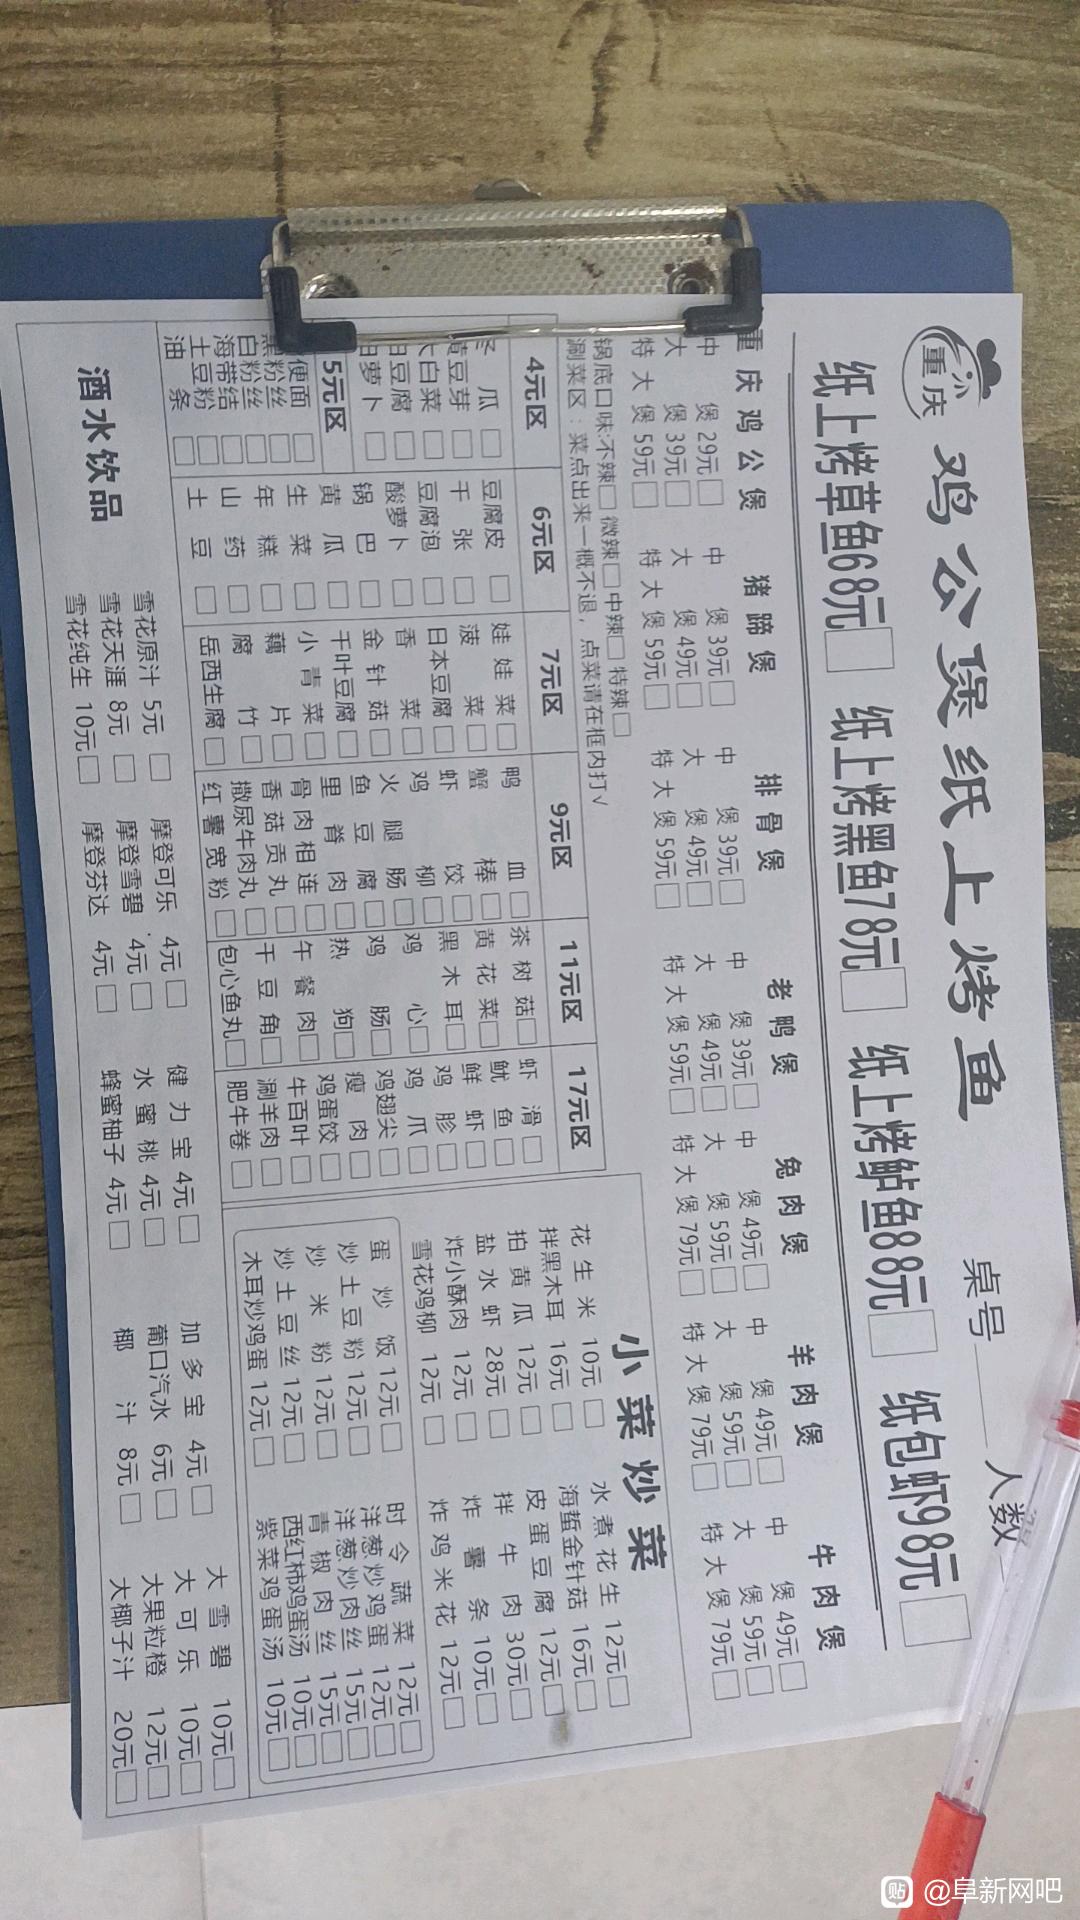 重庆
鸡公煲纸上烤鱼
桌号 人数
纸上烤草鱼68元□ 纸上烤黑鱼78元□ 纸上烤鲈鱼88元□ 纸包虾98元□
重庆鸡公煲 猪蹄煲 排骨煲 老鸭煲 兔肉煲 羊肉煲 牛肉煲
中煲29元□ 中煲39元□ 中煲39元□ 中煲39元□ 中煲49元□ 中煲49元□ 中煲49元□
大煲39元□ 大煲49元□ 大煲49元□ 大煲49元□ 大煲59元□ 大煲59元□ 大煲59元□
特大煲59元□ 特大煲59元□ 特大煲59元□ 特大煲59元□ 特大煲79元□ 特大煲79元□ 特大煲79元□
锅底口味:不辣□ 微辣□ 中辣□ 特辣□
涮菜区:菜点出来一概不退,点菜请在框内打√
4元区
冬瓜□
黄豆芽□
大白菜□
白豆腐□
白萝卜□
5元区
方便面□
黑粉丝□
白粉丝□
海带结□
土豆粉□
油条□
6元区
豆腐皮□
千张□
豆腐泡□
酸萝卜□
锅巴□
黄瓜□
生菜□
年糕□
山药□
土豆□
7元区
娃娃菜□
菠菜□
日本豆腐□
香菜□
金针菇□
千叶豆腐□
小青菜□
藕片□
腐竹□
岳西生腐□
9元区
鸭血□
蟹棒□
虾饺□
鸡柳□
火腿肠□
鱼豆腐□
里脊肉□
骨肉相连□
香菇贡丸□
撒尿牛肉丸□
红薯宽粉□
11元区
茶树菇□
黄花菜□
黑木耳□
鸡心□
鸡肠□
热狗□
午餐肉□
干豆角□
包心鱼丸□
17元区
虾滑□
鱿鱼□
鲜虾□
鸡胗□
鸡爪□
鸡翅尖□
瘦肉□
鸡蛋饺□
牛百叶□
涮羊肉□
肥牛卷□
小菜炒菜
花生米 10元□ 水煮花生 12元□
拌黑木耳 16元□ 海蜇金针菇 16元□
拍黄瓜 12元□ 皮蛋豆腐 12元□
盐水虾 28元□ 拌牛肉 30元□
炸小酥肉 12元□ 炸薯条 10元□
雪花鸡柳 12元□ 炸鸡米花 12元□
蛋炒饭 12元□ 时令蔬菜 12元□
炒土豆粉 12元□ 洋葱炒鸡蛋 12元□
炒米粉 12元□ 洋葱炒肉丝 15元□
炒土豆丝 12元□ 青椒肉丝 15元□
木耳炒鸡蛋 12元□ 西红柿鸡蛋汤 10元□
紫菜鸡蛋汤 10元□
酒水饮品
雪花原汁 5元□ 摩登可乐 4元□ 健力宝 4元□ 加多宝 4元□ 大雪碧 10元□
雪花天涯 8元□ 摩登雪碧 4元□ 水蜜桃 4元□ 葡口汽水 6元□ 大可乐 10元□
雪花纯生 10元□ 摩登芬达 4元□ 蜂蜜柚子 4元□ 椰汁 8元□ 大果粒橙 12元□
大椰子汁 20元□
贴 @阜新网吧